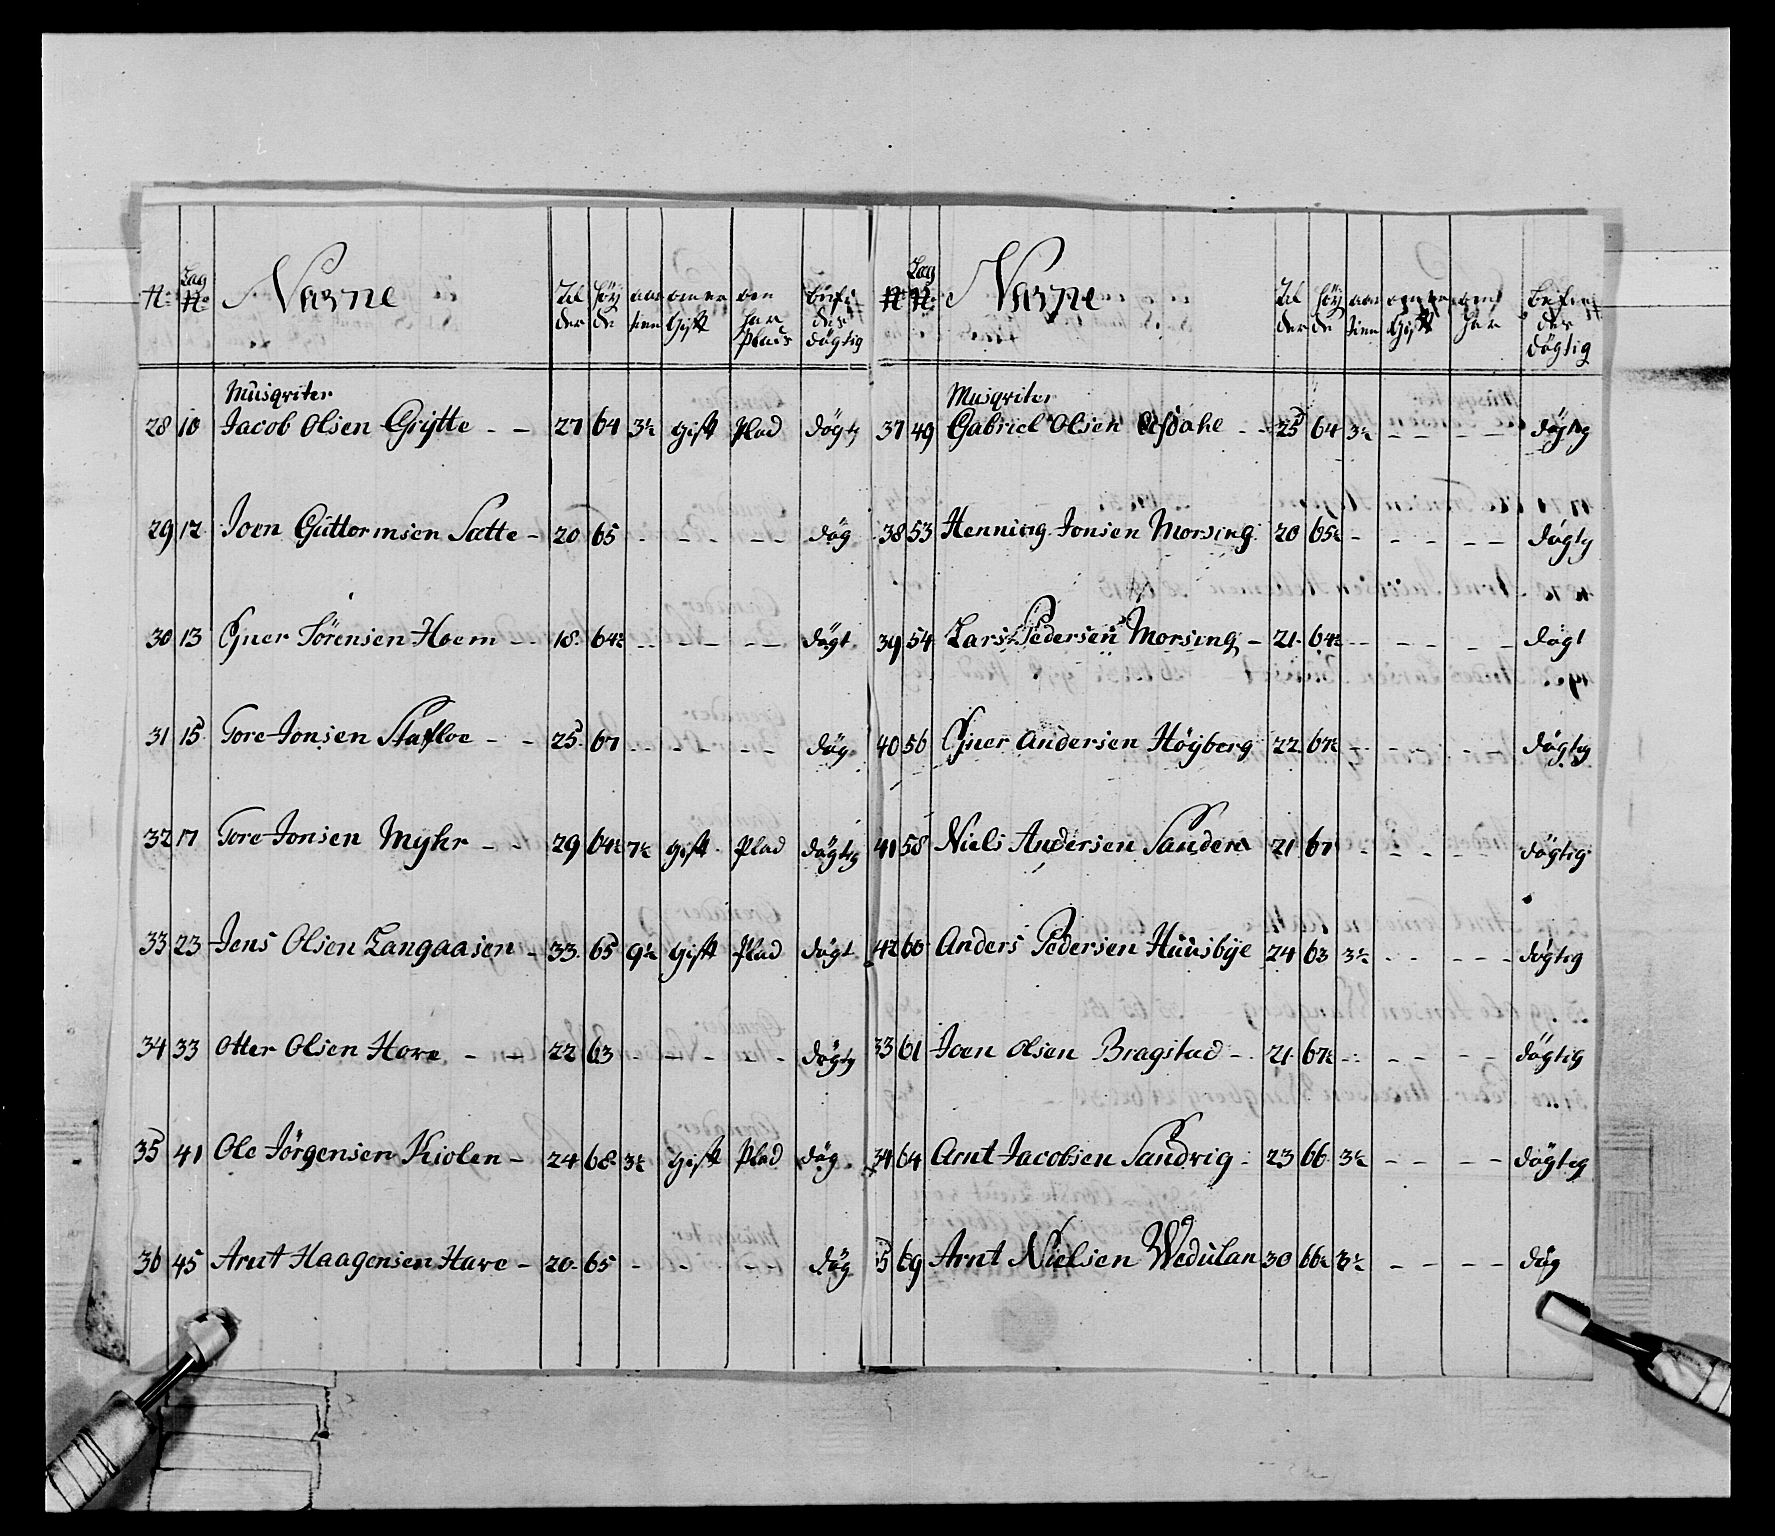 N: Lag N: Navne Al der höy de aar tient om er Gift om har Plads befi des dögtig
Musqviter
28 10 Jacob Olsen Grytte - - 27 64 3½ gift Plad dögtg
29 12 Joen Guttormsen Sætte - 20 65 - - - - - dög
30 13 Ejner Sörensen Hoem - - 18 64½ - - - - - dögt
31 15 Tore Jonsen Stafloe - - 25 67 - - - - - dög
32 17 Tore Jonsen Myhr - - 29 64½ 7½ gift Plad dögtig
33 23 Jens Olsen Langaasen - 33 65 9½ gift Plad dögt
34 33 Otter Olsen Hove - - 22 63 - - - - - dögtg
35 41 Ole Jörgensen Kiolen - 24 68 3½ gift Plad dög
36 45 Arnt Haagensen Have - 20 65 - - - - dög
N: Lag N: Navne Al der höy de aar tient om er Gift om har befin des dögtig
Musqviter
37 49 Gabriel Olsen - - 25 64 3½ - - - - dögtig
38 53 Henning Jonsen Morsing 20 65½ - - - - - dögtg
39 54 Lars Pedersen Morsing - 21 64½ - - - - - dögt
40 56 Ejner Andersen Höyberg 22 67½ - - - - dögtig
41 58 Niels Andersen Sandera 21 67 - - - - - dögtig
42 60 Anders Pedersen Huusbye 24 63 3½ - - - - - dögtig
33 61 Joen Olsen Bragstad - 21 67½ - - - - - dögtig
34 64 Arnt Jacobsen Sandvig - 23 66 3½ - - - - dögteg
35 69 Arnt Nielsen Wedulan 30 66½ 3½ - - - - dög